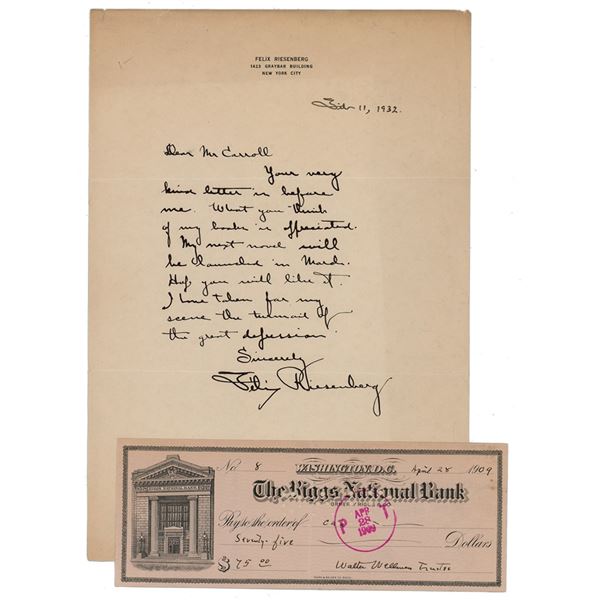 FELIX RIESENBERG
1423 GRAYBAR BUILDING
NEW YORK CITY
Feb 11, 1932.
Dear Mr Carroll
Your very
kind letter is before
me. What you think
of my books is appreciated.
My next novel will
be launched in March.
Hope you will like it.
I have taken for my
scene the turmoil of
the great depression.
Sincerely
Felix Riesenberg
No. 8 WASHINGTON, D.C. April 28 1909
The Riggs National Bank
Pay to the order of
Seventy-five Dollars
$ 75.00 Walter Wellman Trustee
P T
APR
28
1909